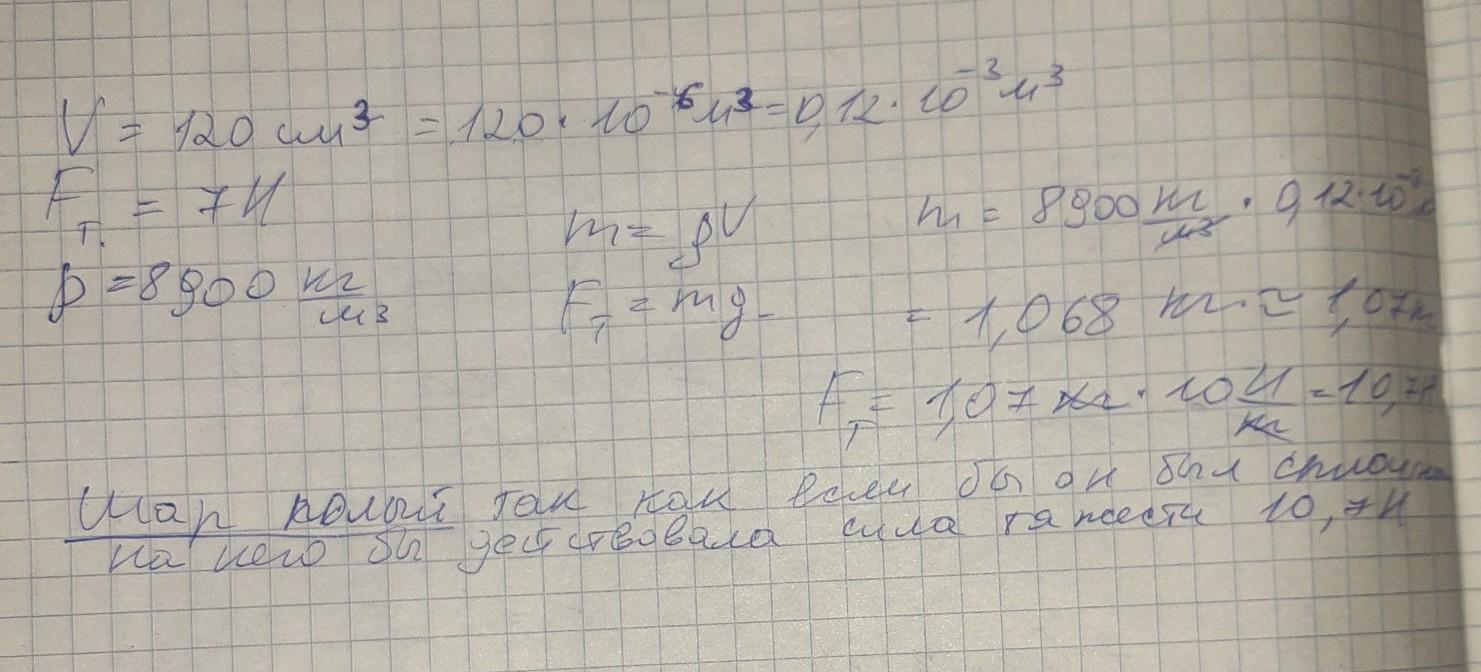 V = 120 см³ = 120 · 10⁻⁶ м³ = 0,12 · 10⁻³ м³
Fт. = 7 Н
m = ρV
m = 8900 кг/м³ · 0,12 · 10
ρ = 8900 кг/м³
Fт = mg
= 1,068 кг ≈ 1,07
Fт = 1,07 кг · 10 Н/кг = 10,7Н
Шар полый так как если бы он был
на него бы действовала сила тяжести 10,7Н